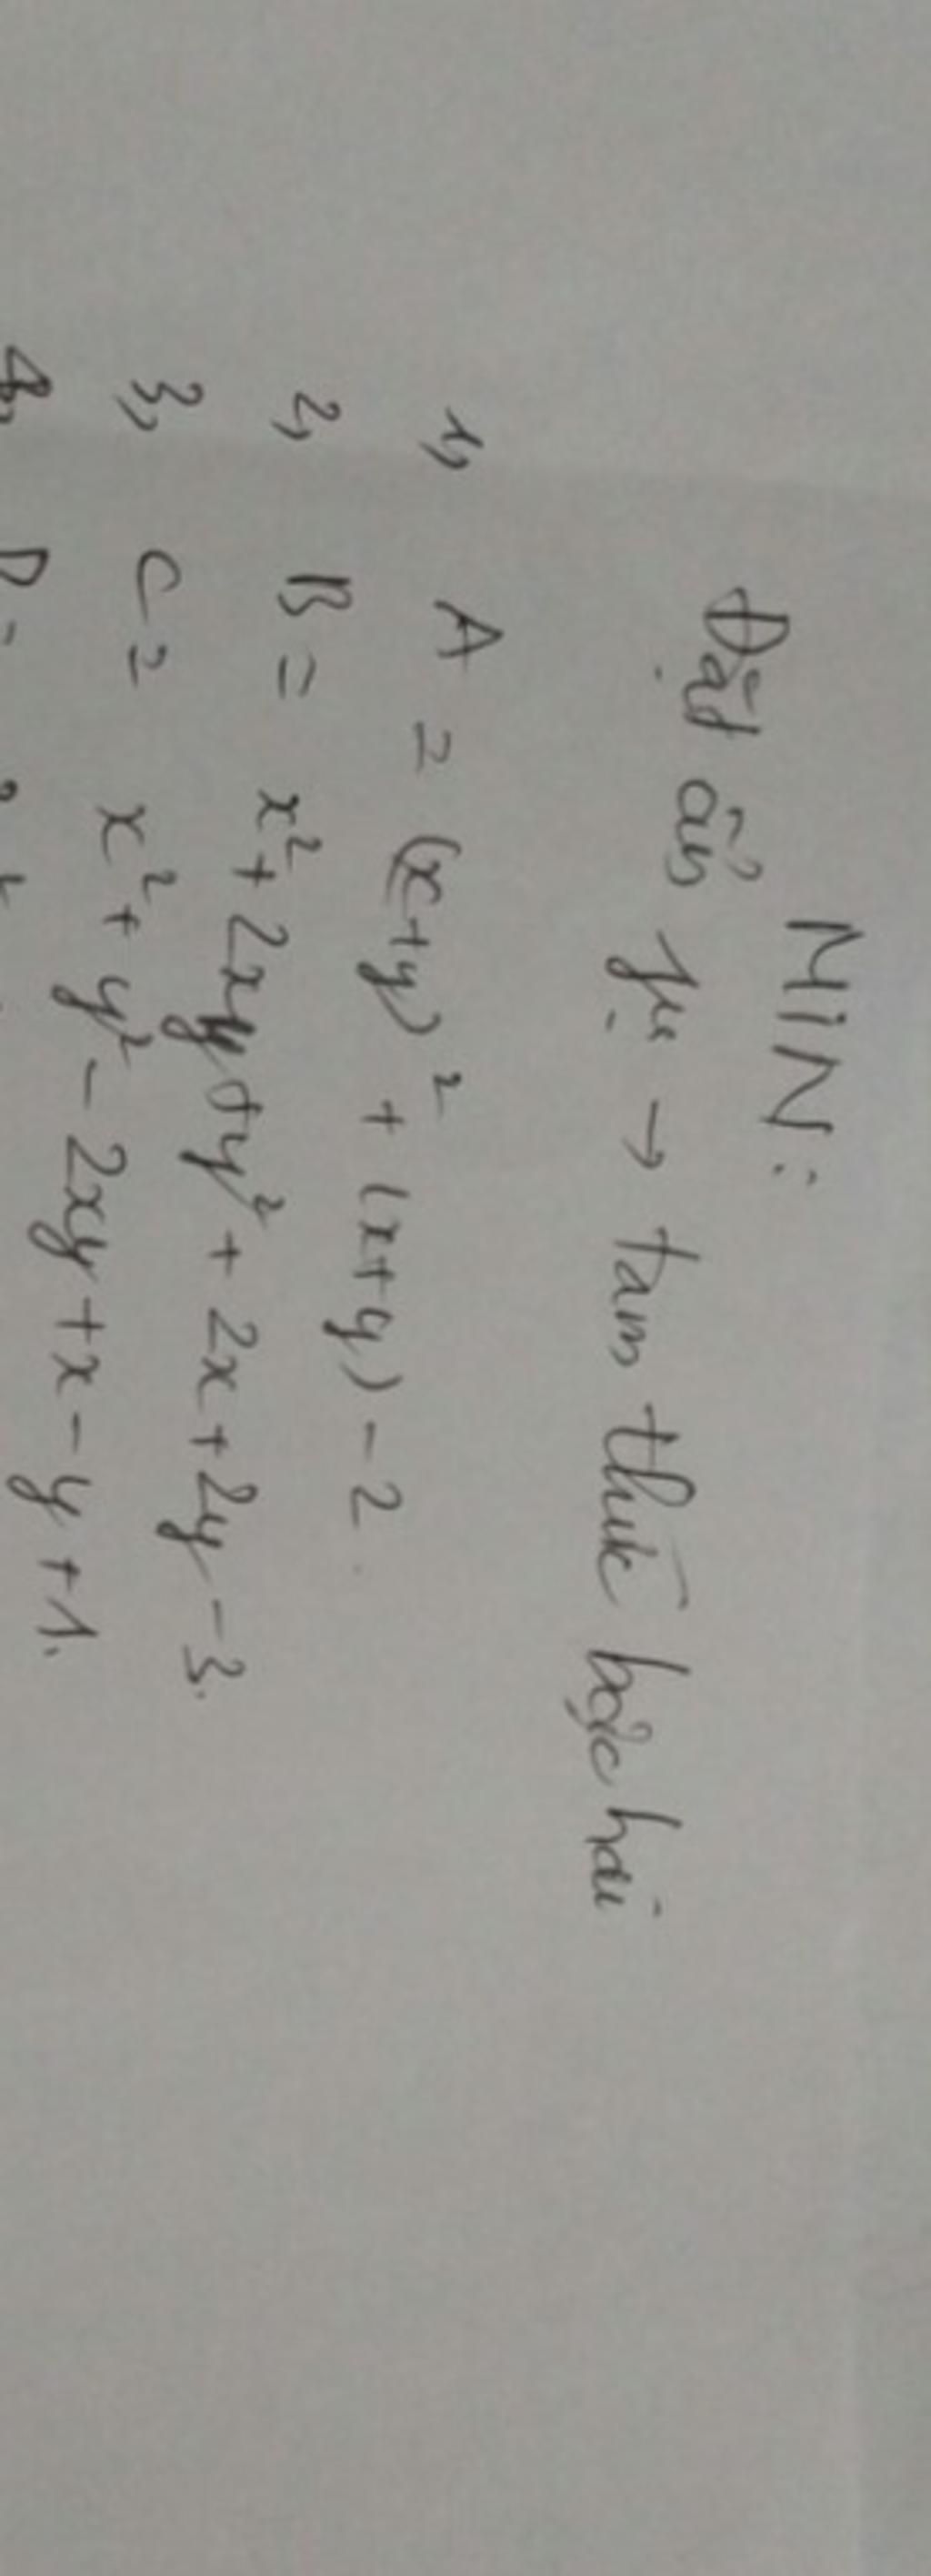 MIN:
Đặt ẩn fụ → tam thức bậc hai
1, A = (x+y)² + (x+y) - 2.
2, B = x² + 2xy + y² + 2x + 2y - 3.
3, C = x² + y² - 2xy + x - y + 1.
4, D =